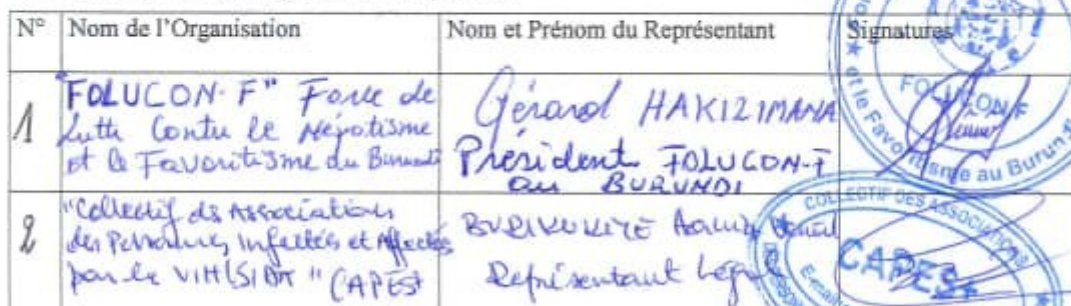 N° Nom de l'Organisation Nom et Prénom du Représentant Signatures
1 "FOLUCON-F" Force de
Lutte Contre le Népotisme
et le Favoritisme du Burundi
Gérard HAKIZIMANA
Président FOLUCON-F
au BURUNDI
FOLUCON-F
et le Favoritisme au Burundi
2 "Collectif ds Associations
des Personnes Infectés et Affectés
par le VIH/SIDA" CAPES+
Représentant Légal
COLLECTIF DES ASSOCIATIONS
CAPES+